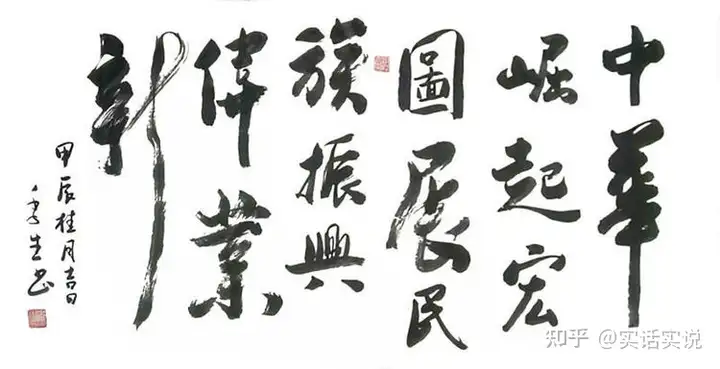 中華
崛起宏
圖展民
族振興
偉業
新
甲辰桂月吉日
生书
知乎 @实话实说